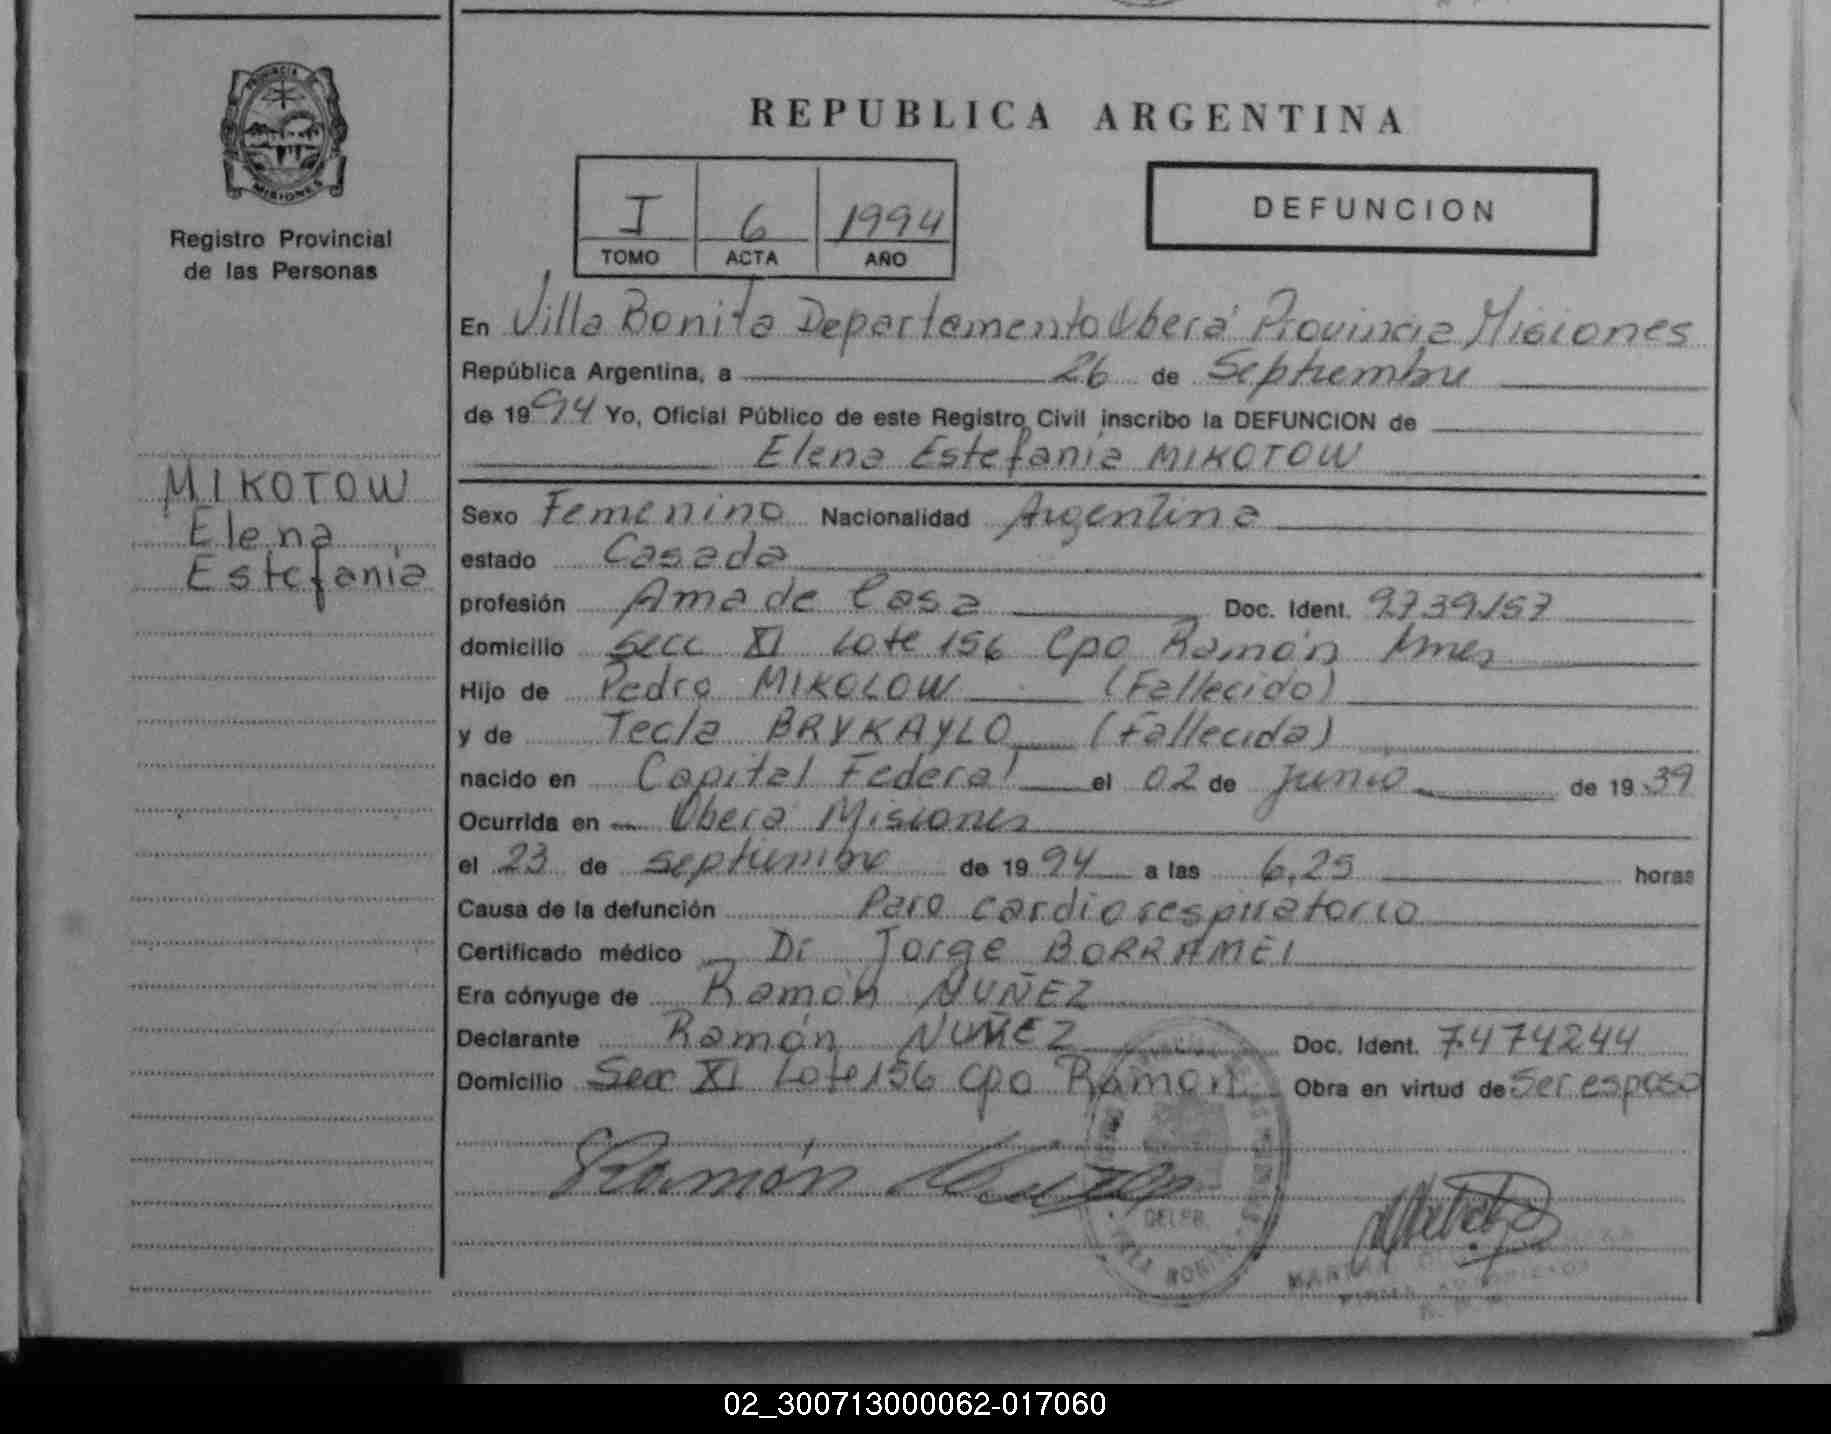 PROVINCIA DE
MISIONES
Registro Provincial
de las Personas
MIKOTOW
Elena
Estefania
REPUBLICA ARGENTINA
I 6 1994
TOMO ACTA AÑO
DEFUNCION
En Villa Bonita Departamento Oberá Provincia Misiones
República Argentina, a 26 de Septiembre
de 1994 Yo, Oficial Público de este Registro Civil inscribo la DEFUNCION de
Elena Estefania MIKOTOW
Sexo Femenino Nacionalidad Argentina
estado Casada
profesión Ama de Casa Doc. Ident. 9.739.157
domicilio secc XI Lote 156 Cpo Ramón
Hijo de Pedro MIKOLOW (Fallecido)
y de Tecla BRYKAYLO (Fallecida)
nacido en Capital Federal el 02 de junio de 1939
Ocurrida en Oberá Misiones
el 23 de septiembre de 1994 a las 6,25 horas
Causa de la defunción Paro cardiorespiratorio
Certificado médico Dr Jorge BORRAMEI
Era cónyuge de Ramón NUÑEZ
Declarante Ramón NUÑEZ Doc. Ident. 7.474244
Domicilio Secc XI Lote 156 Cpo Ramón Obra en virtud de Ser esposo
Ramón Nuñez
02_300713000062-017060